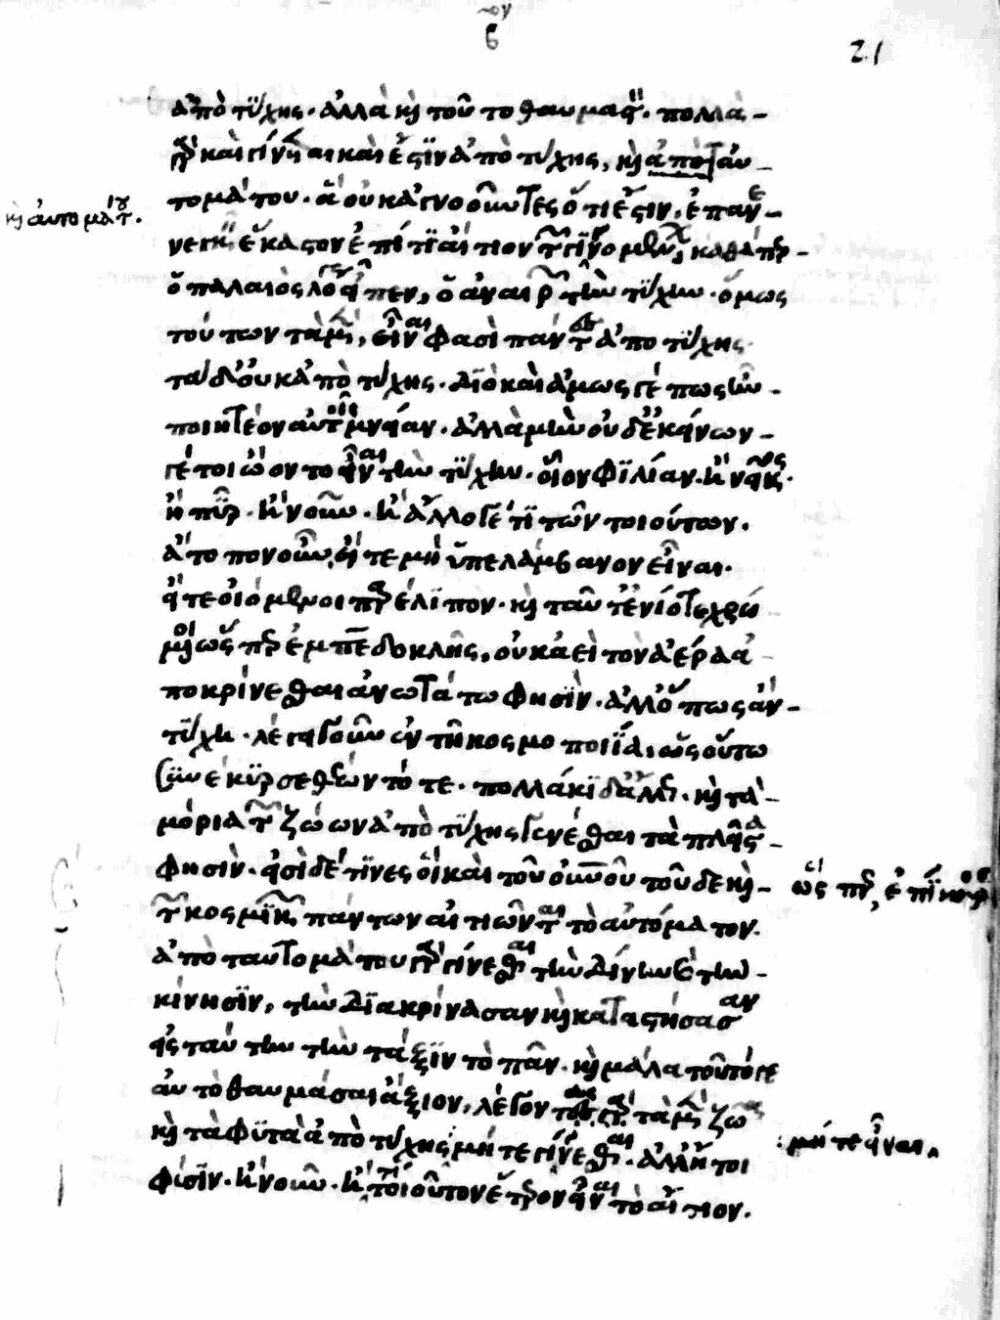 ον
β
21
ἀπὸ τύχης. ἀλλὰ καὶ τοῦτο θαυμαστόν. πολλὰ
γὰρ καὶ γίνεται καὶ ἔστιν ἀπὸ τύχης, καὶ ἀπὸ ταυ
τομάτου. ἃ οὐκ ἀγνοοῦντες ὅτι ἔστιν ἐπαν
καὶ αὐτομάτου.
ενεγκεῖν ἕκαστον ἐπί τι αἴτιον τῶν γινομένων, καθάπερ
ὁ παλαιὸς λόγος εἶπεν, ὁ ἀναιρῶν τὴν τύχην. ὅμως
τούτων τὰ μὲν, εἶναι φασὶ πάντες ἀπὸ τύχης
τὰ δ' οὐκ ἀπὸ τύχης. διὸ καὶ ἁμῶς γέ πως ἦν
ποιητέον αὐτοῖς μνείαν. ἀλλὰ μὴν οὐδ' ἐκείνων
γέ τι ᾤοντο εἶναι τὴν τύχην. οἷον φιλίαν. ἢ νεῖκος.
ἢ πῦρ. ἢ νοῦν. ἢ ἄλλό γέ τι τῶν τοιούτων.
ἄτοπον οὖν, εἴτε μὴ ὑπελάμβανον εἶναι.
εἴτε οἰόμενοι παρέλιπον. καὶ ταῦτ' ἐνίοτε χρώ
μενοι ὥσπερ ἐμπεδοκλῆς, οὐκ ἀεὶ τὸν ἀέρα ἀ
ποκρίνεσθαι ἀνωτάτω φησὶν. ἀλλ' ὅπως ἂν
τύχῃ. λέγει γοῦν ἐν τῇ κοσμοποιίᾳ, ὡς οὕτω
συνέκυρσε θέων τότε. πολλάκι δ' ἄλλως. καὶ τὰ
μόρια τῶν ζώων ἀπὸ τύχης γενέσθαι τὰ πλεῖστα
φησὶν. εἰσὶ δέ τινες οἳ καὶ τοῦ οὐρανοῦ τοῦδε καὶ
ὥσπερ, ἐπίκουροι
τῶν κοσμικῶν πάντων αἰτιῶνται τὸ αὐτόματον.
ἀπὸ ταυτομάτου γὰρ γίνεσθαι τὴν δίνην καὶ τὴν
κίνησιν, τὴν διακρίνασαν καὶ καταστήσασαν
εἰς ταύτην τὴν τάξιν τὸ πᾶν. καὶ μάλα τοῦτό γε
αὐτὸ θαυμάσαι ἄξιον, λέγοντες γὰρ τὰ μὲν ζῶα
καὶ τὰ φυτὰ ἀπὸ τύχης μήτε γίνεσθαι. ἀλλ' ἤτοι
: μήτε εἶναι
φύσιν. ἢ νοῦν. ἤ τι τοιοῦτον ἕτερον εἶναι τὸ αἴτιον.